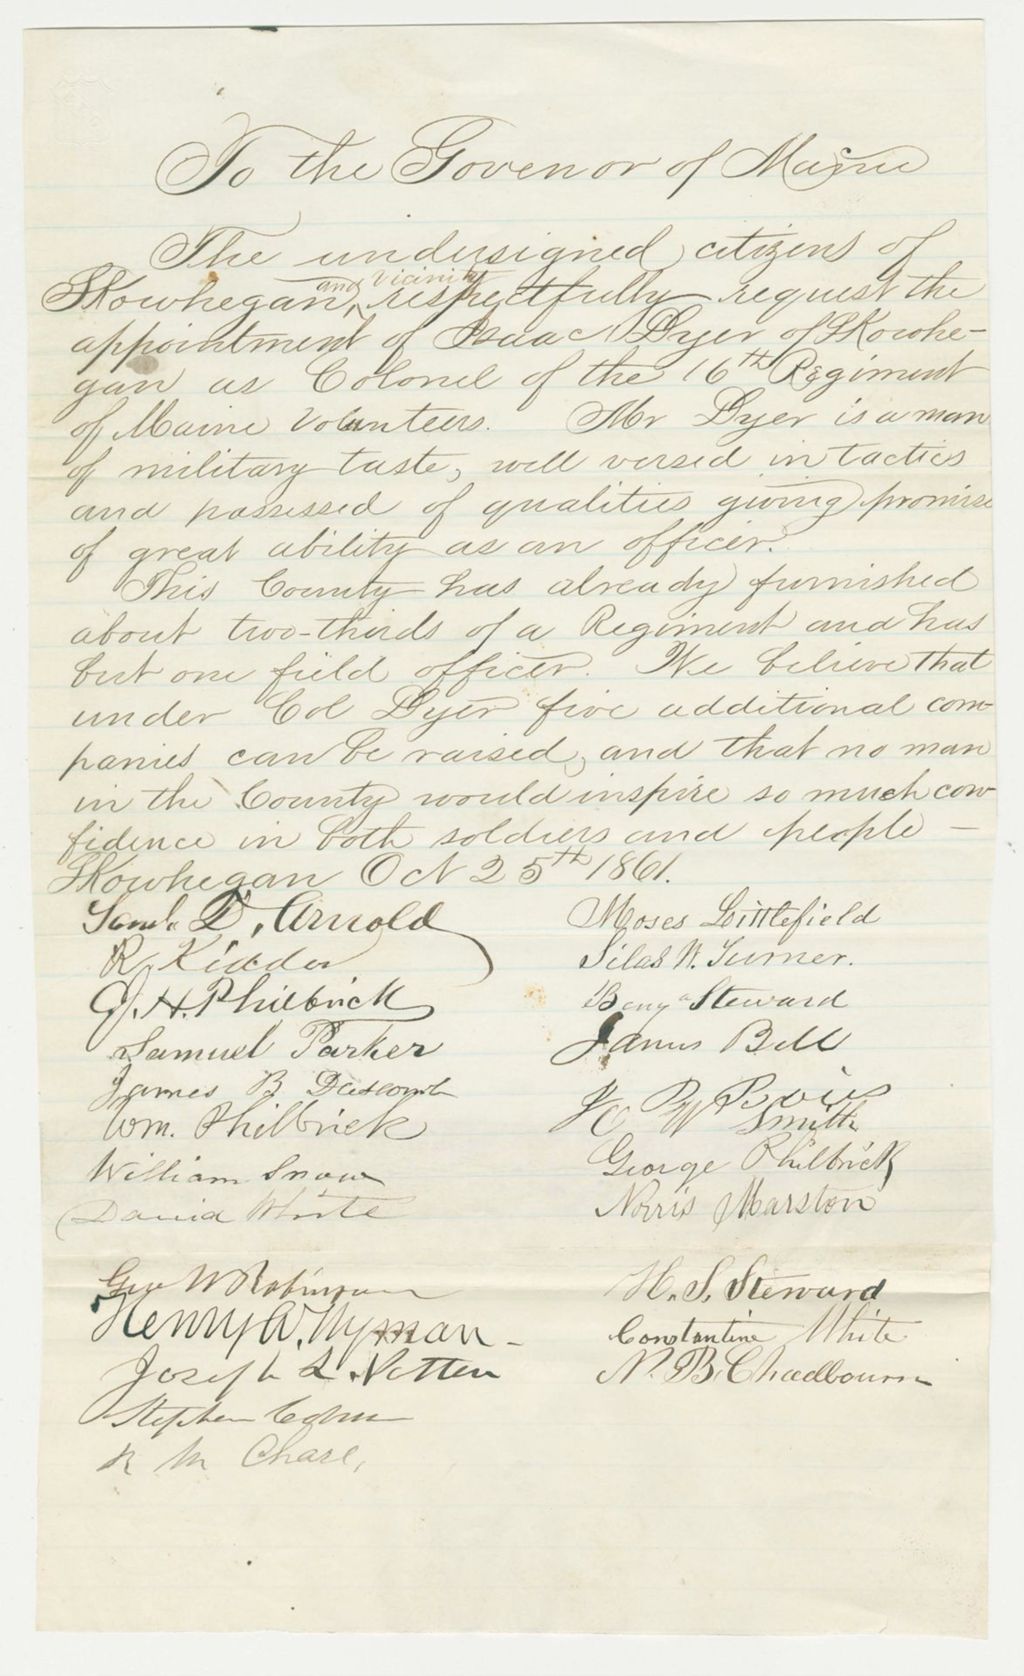 To the Govenor of Maine
The undersigned citizens of
Skowhegan and vicinity respectfully request the
appointment of Isaac Dyer of Skowhe-
gan as Colonel of the 16th Regiment
of Maine Volunteers. Mr Dyer is a man
of military taste, well versed in tactics
and possessed of qualities giving promise
of great ability as an officer.
This County has already furnished
about two-thirds of a Regiment and has
but one field officer. We believe that
under Col Dyer five additional com-
panies can be raised, and that no man
in the County would inspire so much con-
fidence in both soldiers and people -
Skowhegan Oct 25th 1861.
Saml. D. Arnold
R Kidder
J. H. Philbrick
Samuel Parker
James B Dascomb
Wm. Philbrick
William Snow
David White
Geo W Robinson
Henry A. Wyman
Joseph L. Notten
Stephen
R M Chase,
Moses Littlefield
Silas W. Turner.
Benja Steward
James Bell
P
W Smith
George Philbrick
Norris Marston
H. S. Steward
Constantine White
N. B. Chadbourn